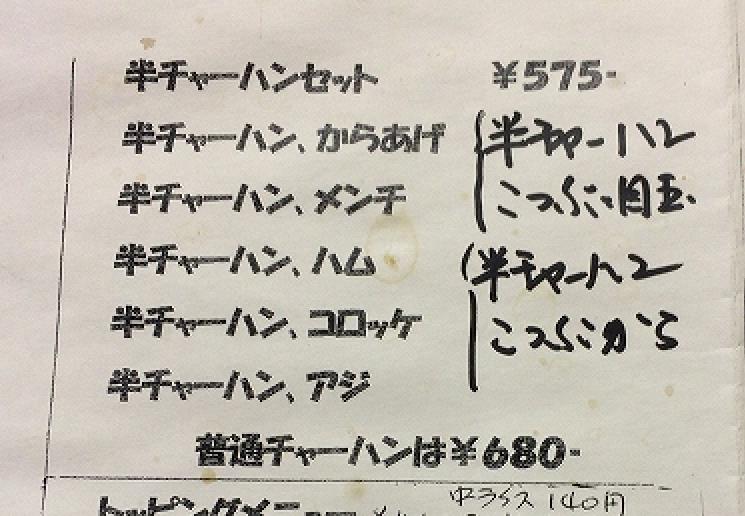 半チャーハンセット ¥575-
半チャーハン、からあげ
半チャーハン、メンチ
半チャーハン、ハム
半チャーハン、コロッケ
半チャーハン、アジ
半チャーハン
目玉
半チャーハン
から
普通チャーハンは¥680-
トッピングメニュー
中ライス 140円